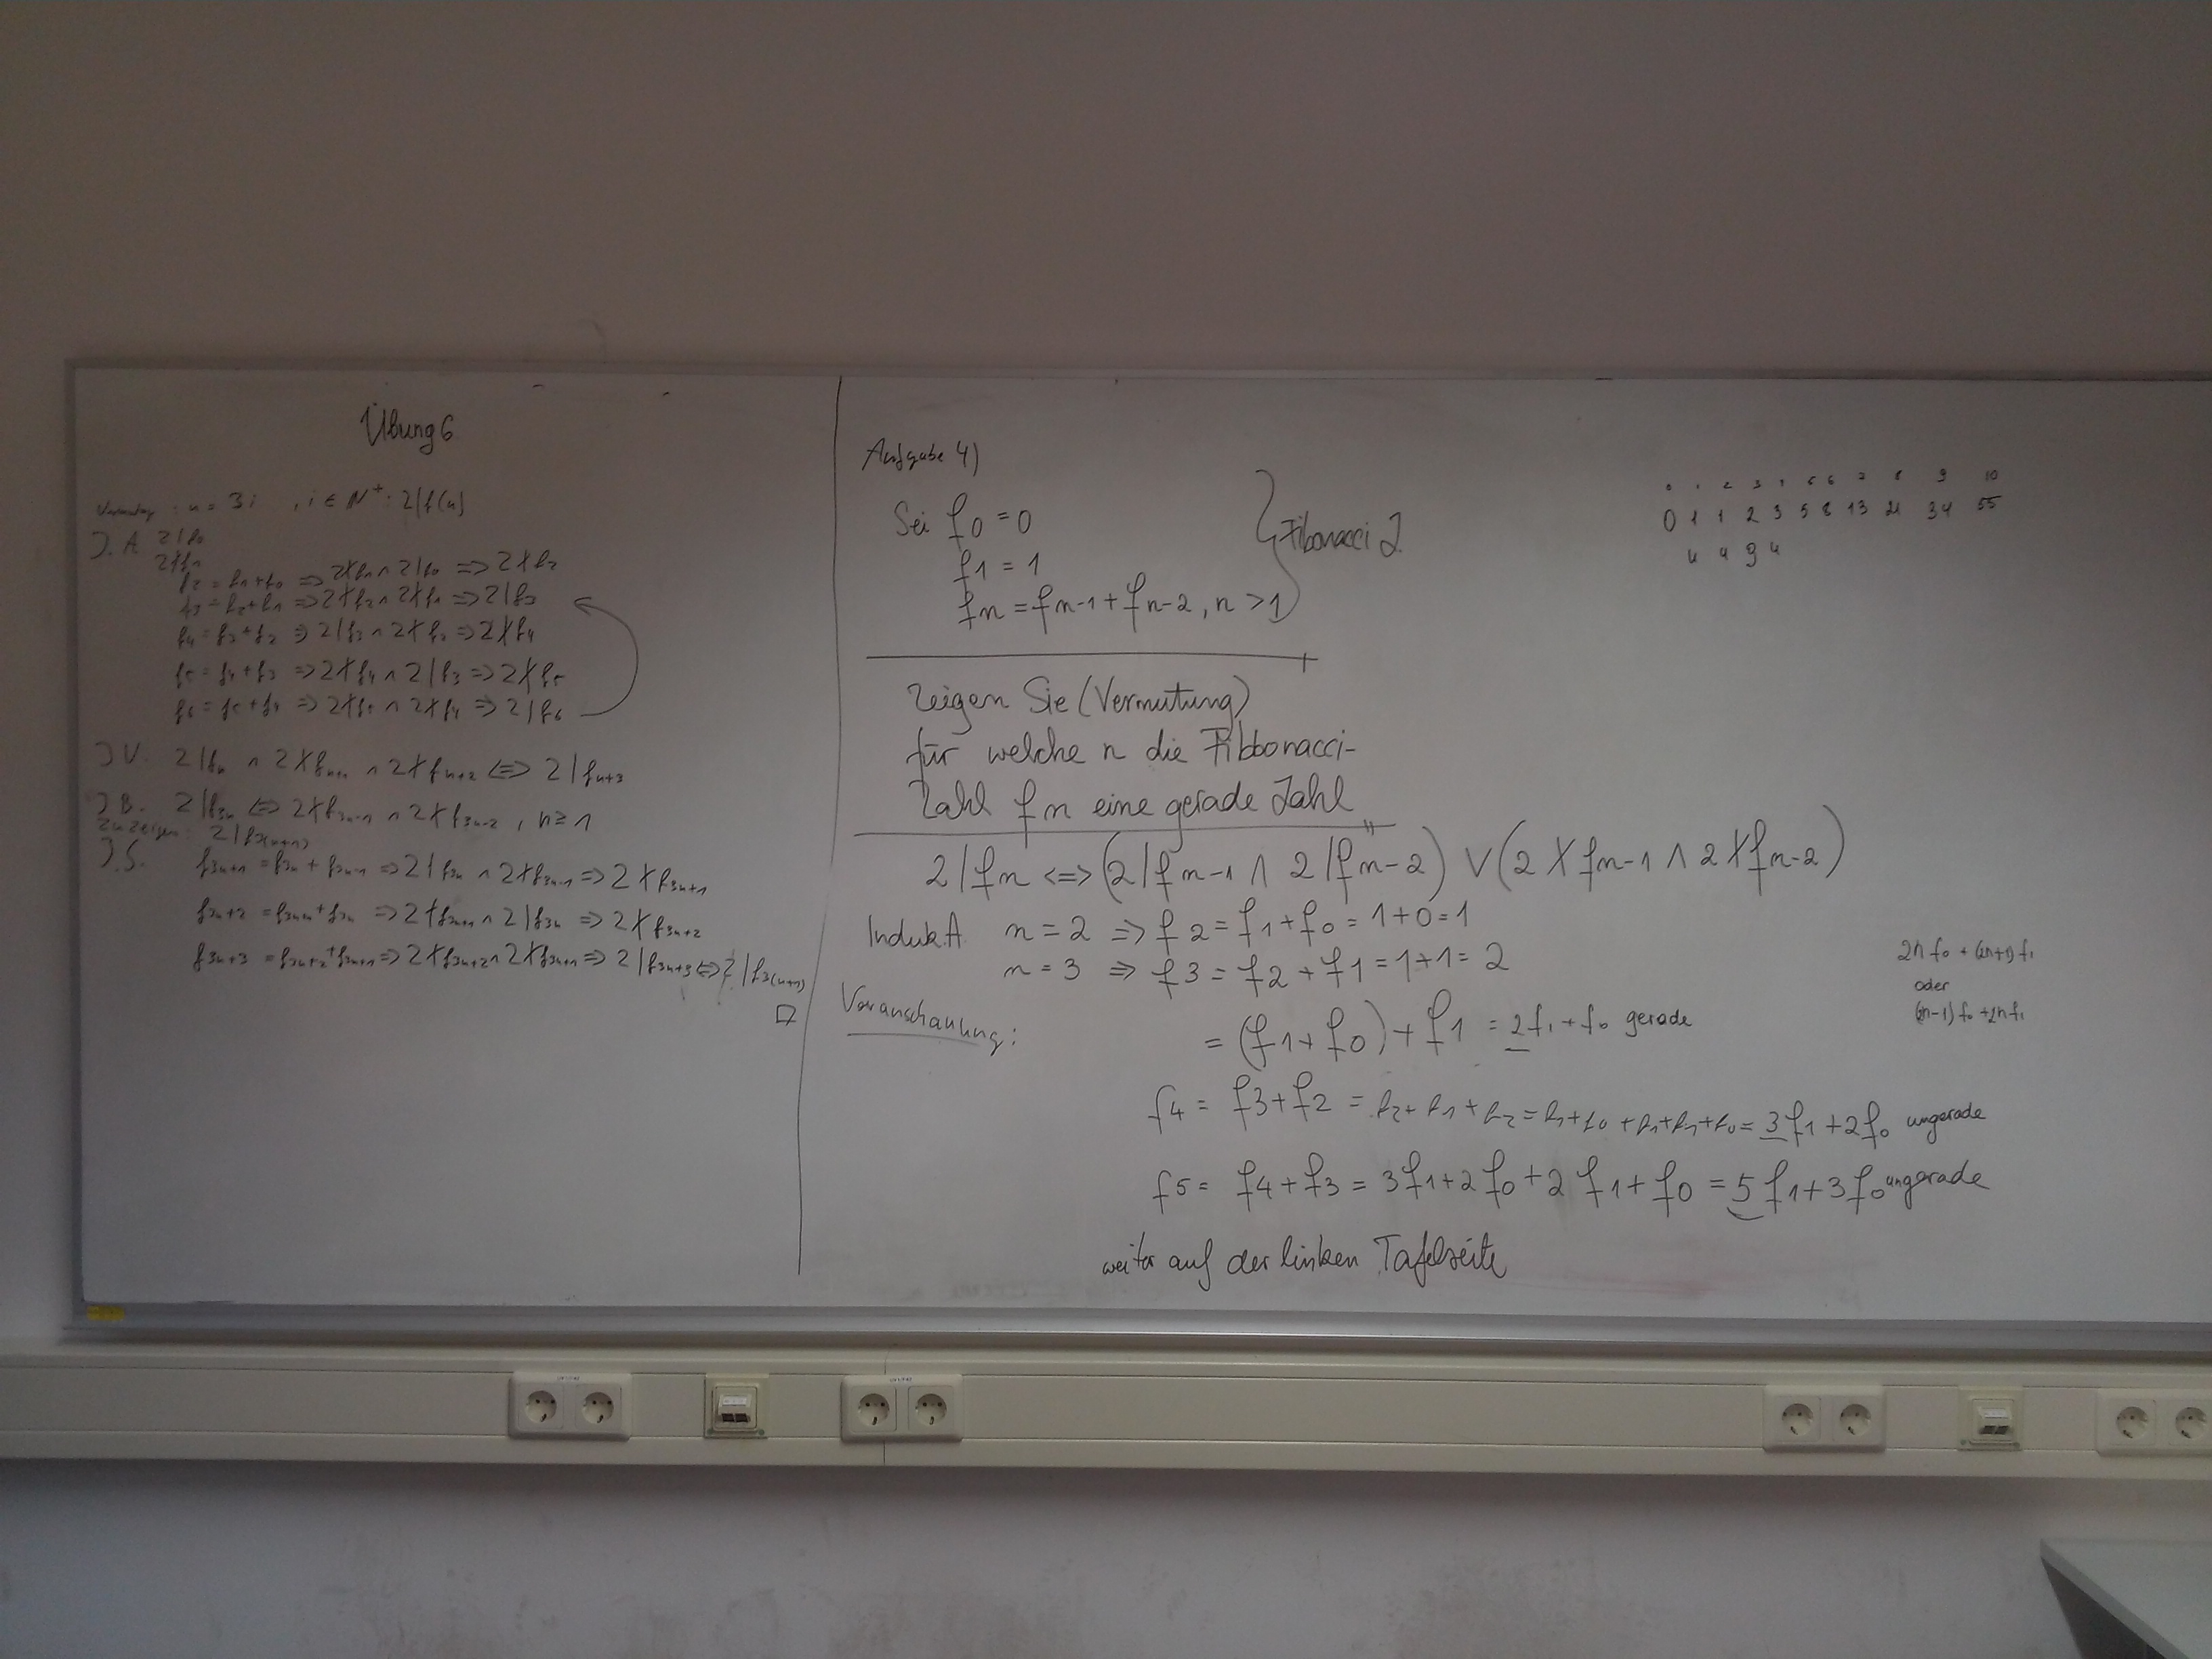 Übung 6
Vermutung : n = 3i , i ∈ N⁺: 2|f(n)
I.A 2|f0
2∤f1
f2 = f1+f0 => 2∤f1 ∧ 2|f0 => 2∤f2
f3 = f2+f1 => 2∤f2 ∧ 2∤f1 => 2|f3
f4 = f3+f2 => 2|f3 ∧ 2∤f2 => 2∤f4
f5 = f4+f3 => 2∤f4 ∧ 2|f3 => 2∤f5
f6 = f5+f4 => 2∤f5 ∧ 2∤f4 => 2|f6
I.V. 2|fn ∧ 2∤fn+1 ∧ 2∤fn+2 <=> 2|fn+3
I.B. 2|f3n <=> 2∤f3n-1 ∧ 2∤f3n-2 , n≥1
zu zeigen: 2|f3(n+1)
I.S. f3n+1 = f3n + f3n-1 => 2|f3n ∧ 2∤f3n-1 => 2∤f3n+1
f3n+2 = f3n+1 + f3n => 2∤f3n+1 ∧ 2|f3n => 2∤f3n+2
f3n+3 = f3n+2 + f3n+1 => 2∤f3n+2 ∧ 2∤f3n+1 => 2|f3n+3 <=> 2|f3(n+1)
□
Aufgabe 4)
Sei f0 = 0
f1 = 1
fn = fn-1 + fn-2, n > 1
} Fibonacci Z.
Zeigen Sie (Vermutung)
für welche n die Fibbonacci-
Zahl fn eine gerade Zahl
2|fn <=> (2|fn-1 ∧ 2|fn-2) ∨ (2∤fn-1 ∧ 2∤fn-2)
Induk.A n = 2 => f2 = f1 + f0 = 1+0 = 1
n = 3 => f3 = f2 + f1 = 1+1 = 2
Veranschaulung:
= (f1 + f0) + f1 = 2f1 + f0 gerade
f4 = f3 + f2 = f2 + f1 + f2 = f1 + f0 + f1 + f1 + f0 = 3f1 + 2f0 ungerade
f5 = f4 + f3 = 3f1 + 2f0 + 2f1 + f0 = 5f1 + 3f0 ungerade
weiter auf der linken Tafelseite
0 1 2 3 4 5 6 7 8 9 10
0 1 1 2 3 5 8 13 21 34 55
u u g u
2n f0 + (2n+1) f1
oder
(2n-1) f0 + 2n f1